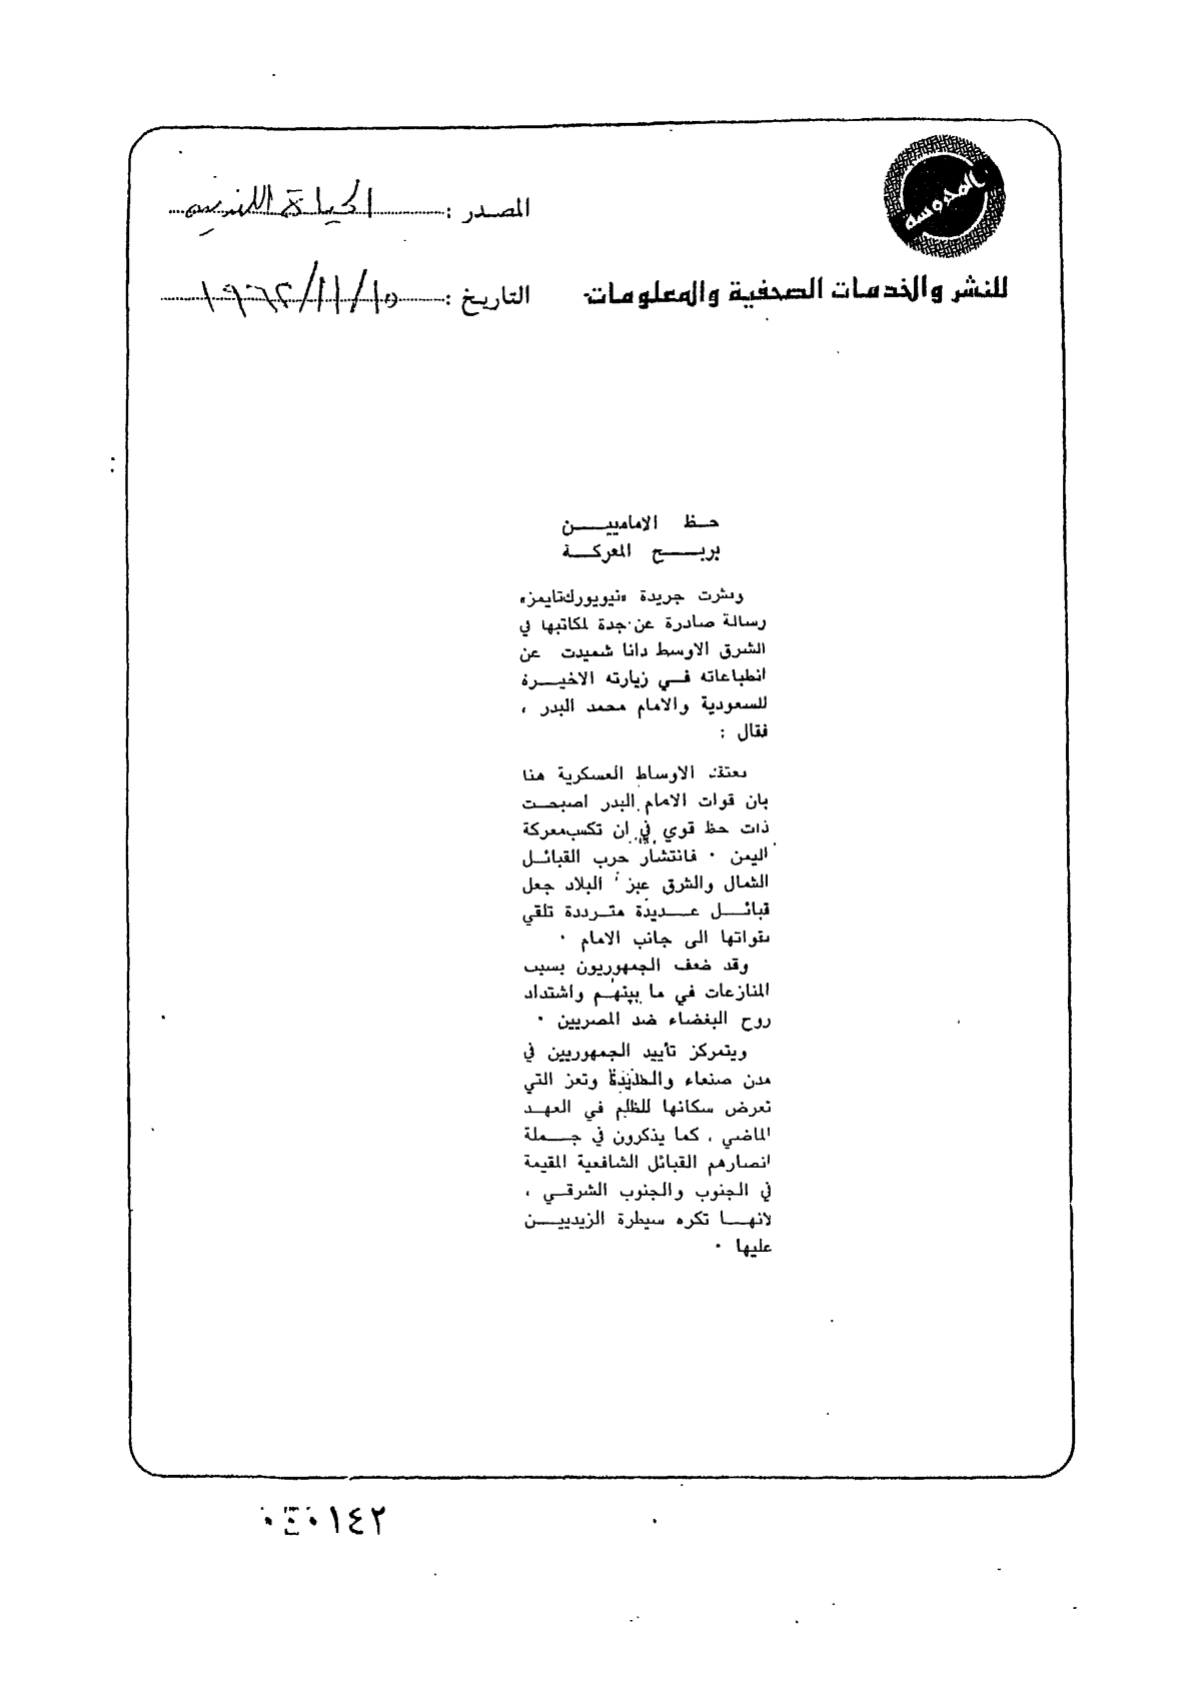 المحروسة
المصدر : الحياة اللندنية
للنشر والخدمات الصحفية والمعلومات
التاريخ : ١٩٦٢/١١/١٥
حظ الاماميين
بربح المعركة
ونشرت جريدة «نيويورك تايمز»
رسالة صادرة عن جدة لمكاتبها في
الشرق الاوسط دانا شميدت عن
انطباعاته في زيارته الاخيرة
للسعودية والامام محمد البدر ،
فقال :
تعتقد الاوساط العسكرية هنا
بان قوات الامام البدر اصبحت
ذات حظ قوي في ان تكسب معركة
اليمن . فانتشار حرب القبائل
الشمال والشرق عبر البلاد جعل
قبائل عديدة مترددة تلقي
بقواتها الى جانب الامام .
وقد ضعف الجمهوريون بسبب
المنازعات في ما بينهم واشتداد
روح البغضاء ضد المصريين .
ويتمركز تأييد الجمهوريين في
مدن صنعاء والحديدة وتعز التي
تعرض سكانها للظلم في العهد
الماضي ، كما يذكرون في جملة
انصارهم القبائل الشافعية المقيمة
في الجنوب والجنوب الشرقي ،
لانها تكره سيطرة الزيديين
عليها .
١٤٢